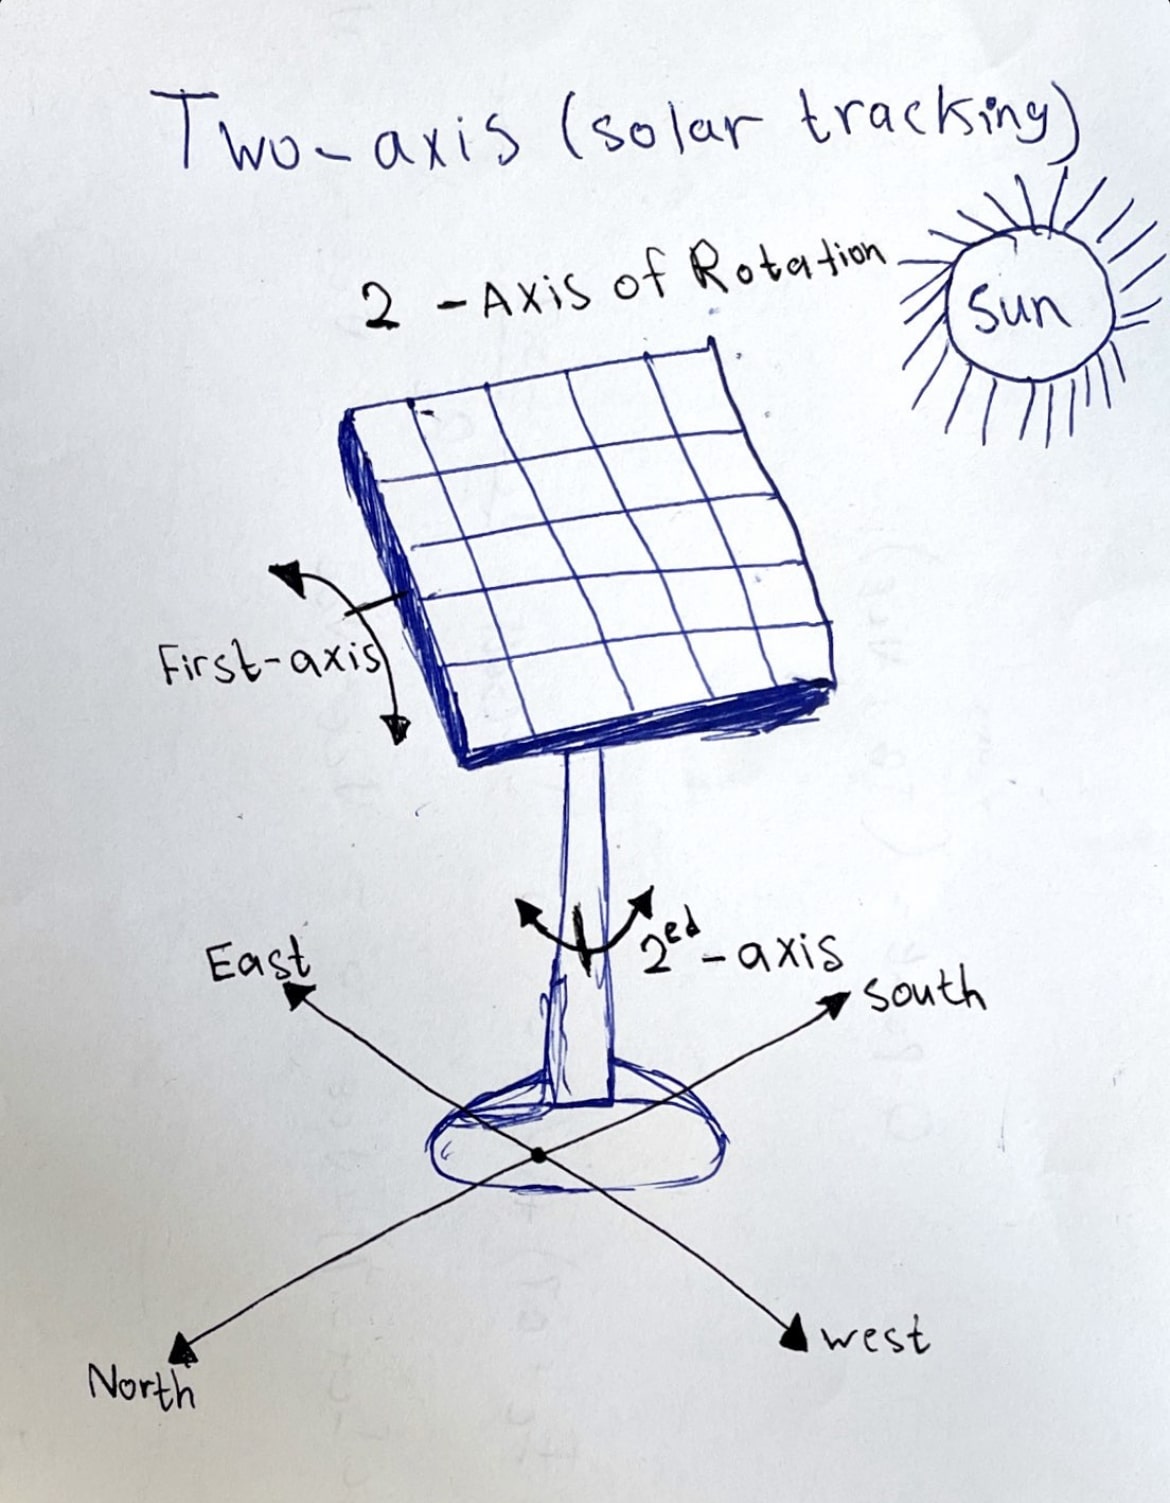 Two-axis (solar tracking)
2 -Axis of Rotation
Sun
First-axis
2ed-axis
East
south
west
North